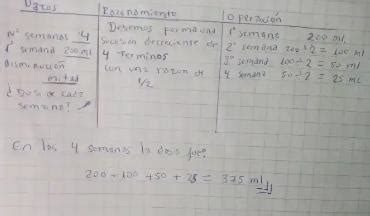 Datos
Razonamiento
Operación
Nº semanas 4
1ª semana 200 ml
disminución
mitad
¿Dosis de cada
semana?
Debemos formar una
sucesión decreciente de
4 Terminos
con una razón de
1/2
1ª semana 200 ml.
2ª semana 200÷2 = 100 ml
3ª semana 100÷2 = 50 ml
4 semana 50÷2 = 25 ml
En las 4 semanas la dosis fue:
200 + 100 + 50 + 25 = 375 ml